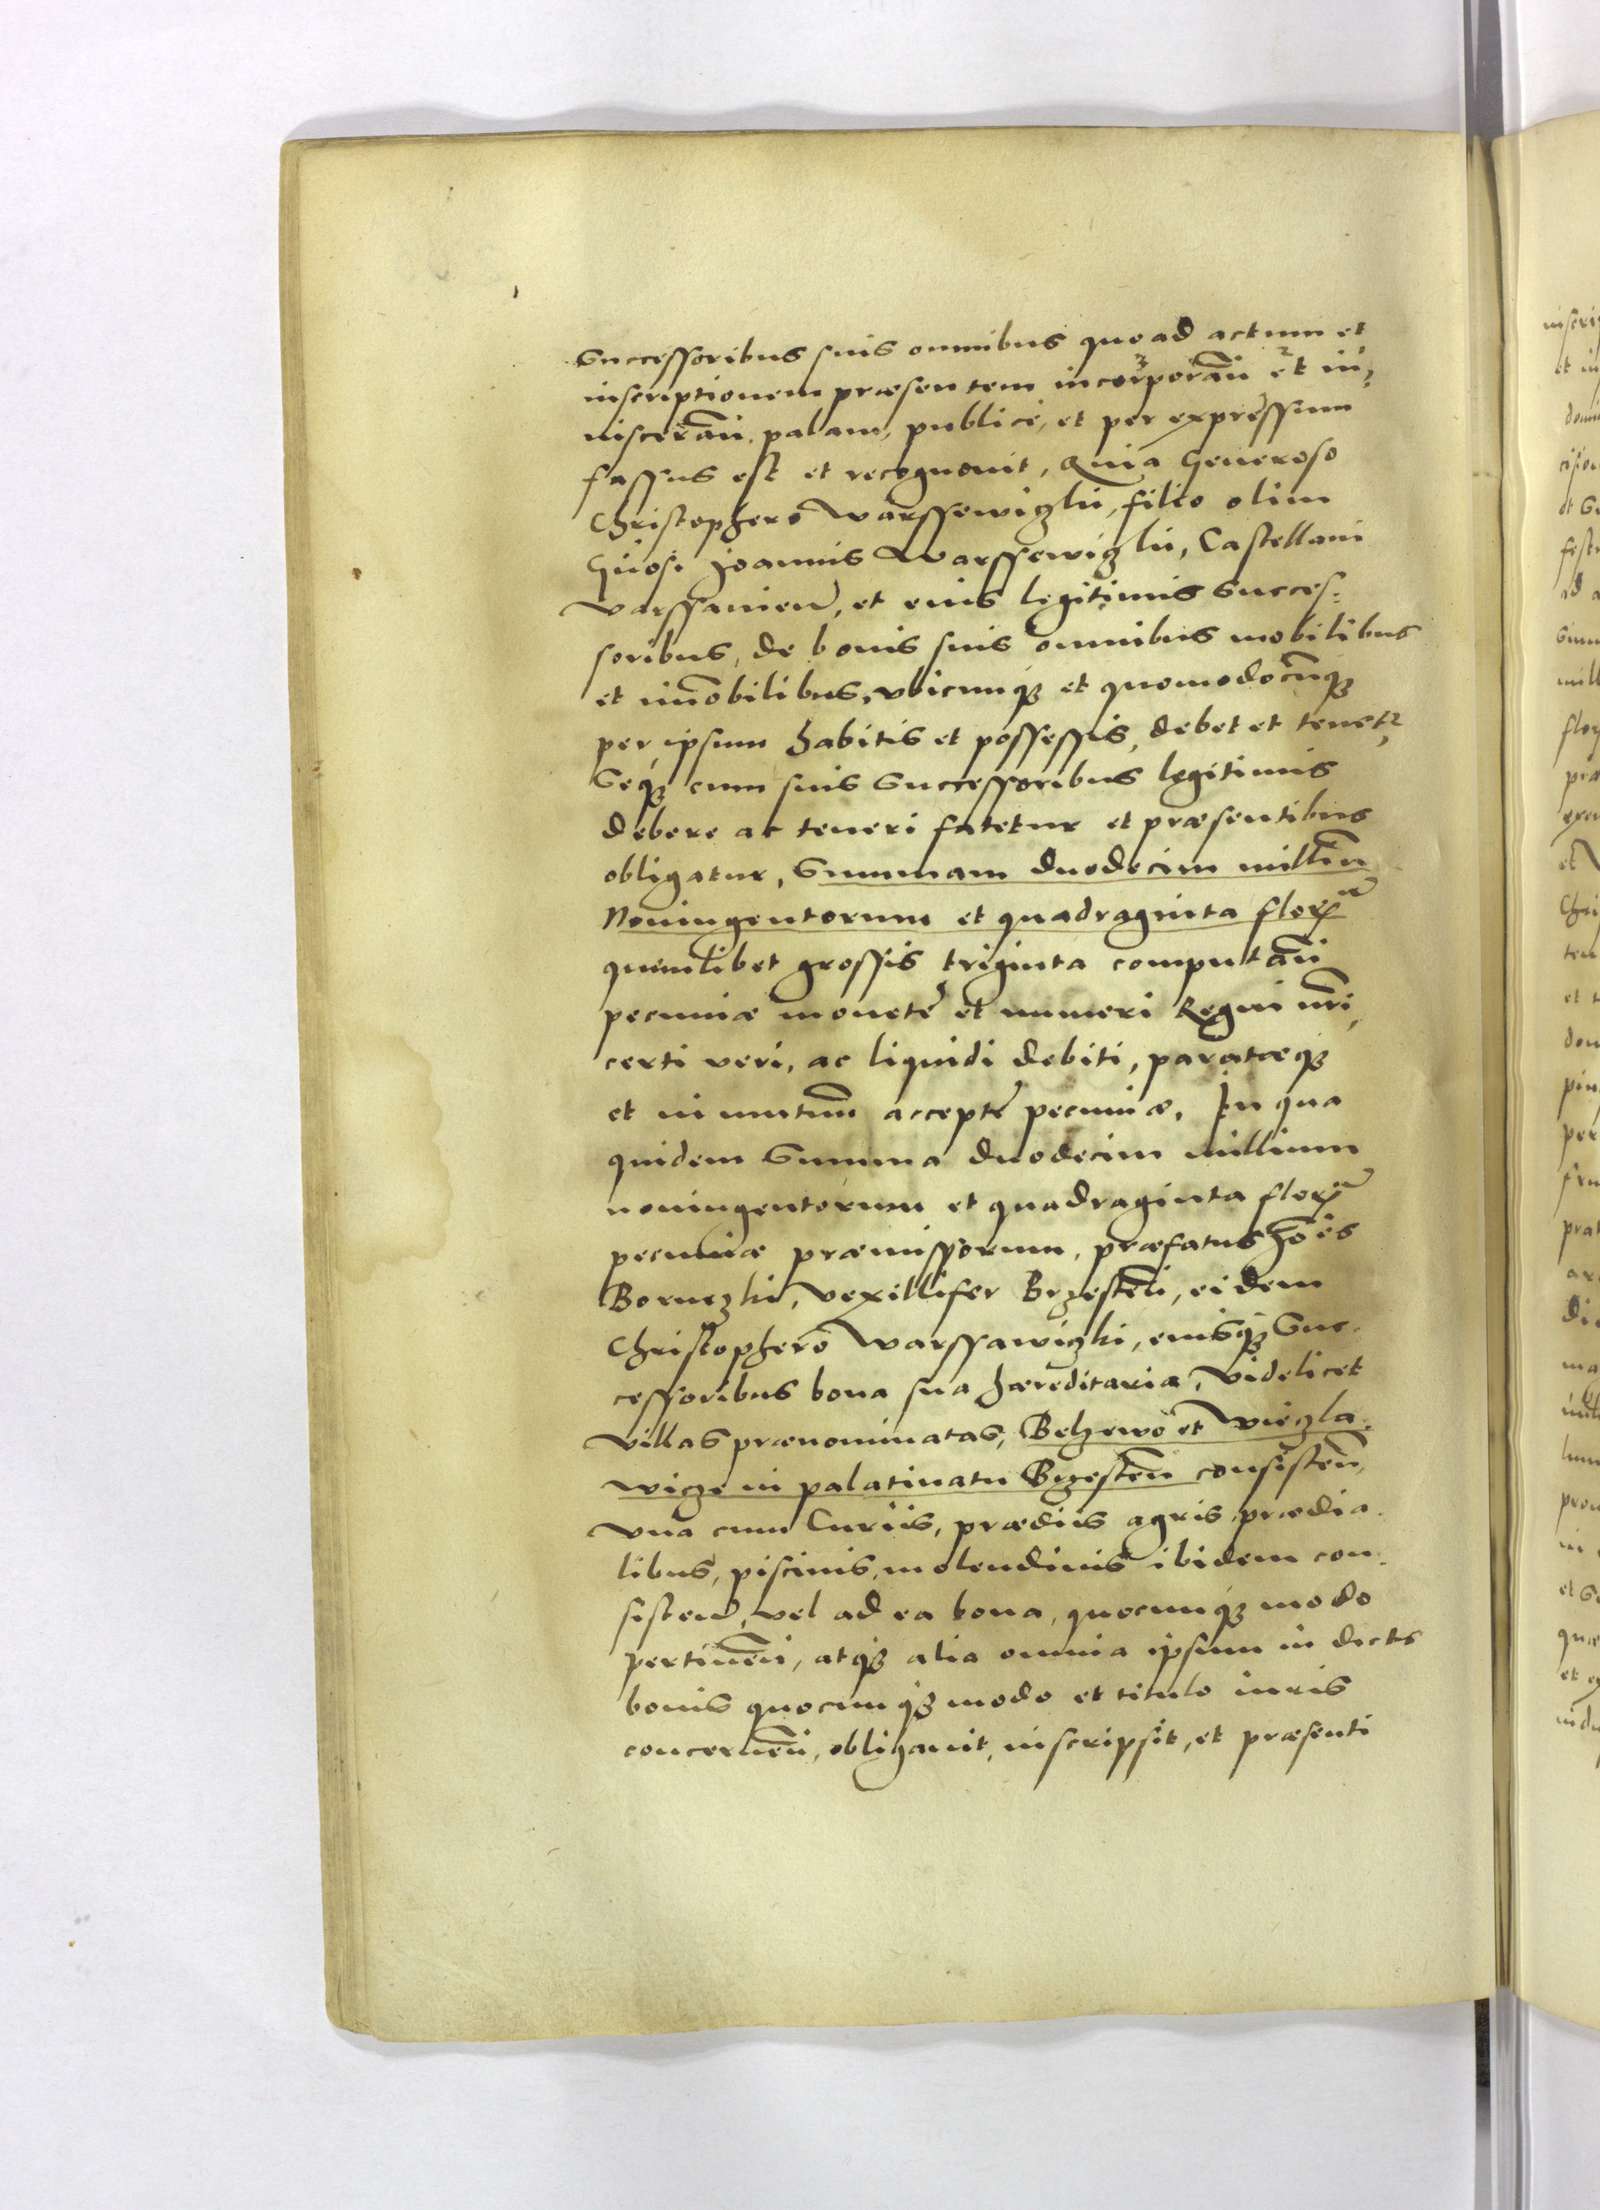 Successoribus suis omnibus quoad actum et
inscriptionem præsentem incorporan̄ et in¬
visceran̄, palam, publice, et per expressum
fassus est et recognovit, Quia Generoso
Christophero Warssewiczki, filio olim
Gn̄osi Joannis Warssewiczki, Castellani
Varssavien̄, et eius legitimis Succes¬
soribus, de bonis suis omnibus mobilibus
et im̄obilibus, ubicunq et quomodocūnq
per ipsum habitis et possessis, debet et tenetr
Seq cum suis Successoribus legitimis
debere ac teneri fatetur et præsentibus
obligatur, Summam duodecim milliū
Noningentorum et quadraginta florū
quemlibet grossis triginta computan̄
pecuniæ monetę et numeri Regni nr̄i,
certi veri, ac liquidi debiti, paratæq
et in mutuū acceptę pecuniæ, In qua
quidem Summa duodecim millium
noningentorum et quadraginta florū
pecuniæ præmissorum, præfatus Joēs
Boruczki, vexillifer Brzesten̄, eidem
Christophero Warssawiczki, eiusq Suc¬
cessoribus bona sua hæreditaria, Videlicet
Villas prænominatas, Belzewo et Wieczla¬
wicze in palatinatu Brzesten̄ consisten̄,
Una cum Curiis, prædiis agris prædia¬
libus, piscinis, molendinis ibidem con¬
sisten̄, vel ad ea bona, quocunq modo
pertinen̄, atq alia omnia ipsum in dictis
bonis quocunq modo et titulo iuris
concernen̄, obligavit, inscripsit, et præsenti